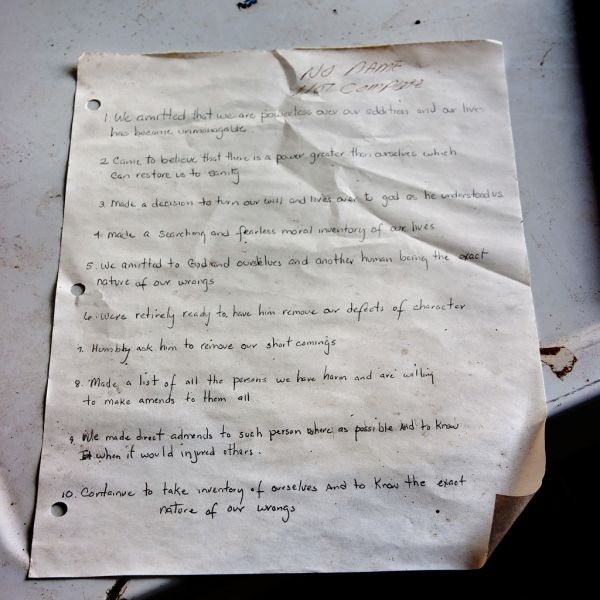 NO NAME
NOT Complete
1 We amitted that we are powerless over our addition and our lives
has became unmanagable
2. Came to believe that there is a power greater than ourselves which
Can restore us to sanity
3 Made a decision to turn our will and lives over to god as he understood us
4. made a searching and fearless moral inventory of our lives
5. We amitted to God and ourselves and another human being the exact
nature of our wrongs
6. Were retirely ready to have him remove our defects of character
7. Humbly ask him to remove our short comings
8. Made a list of all the persons we have harm and are willing
to make amends to them all
9. We made direct admends to such person where as possible And to Know
when it would injured others.
10. Containue to take inventory of ourselves And to Know the exact
nature of our wrongs